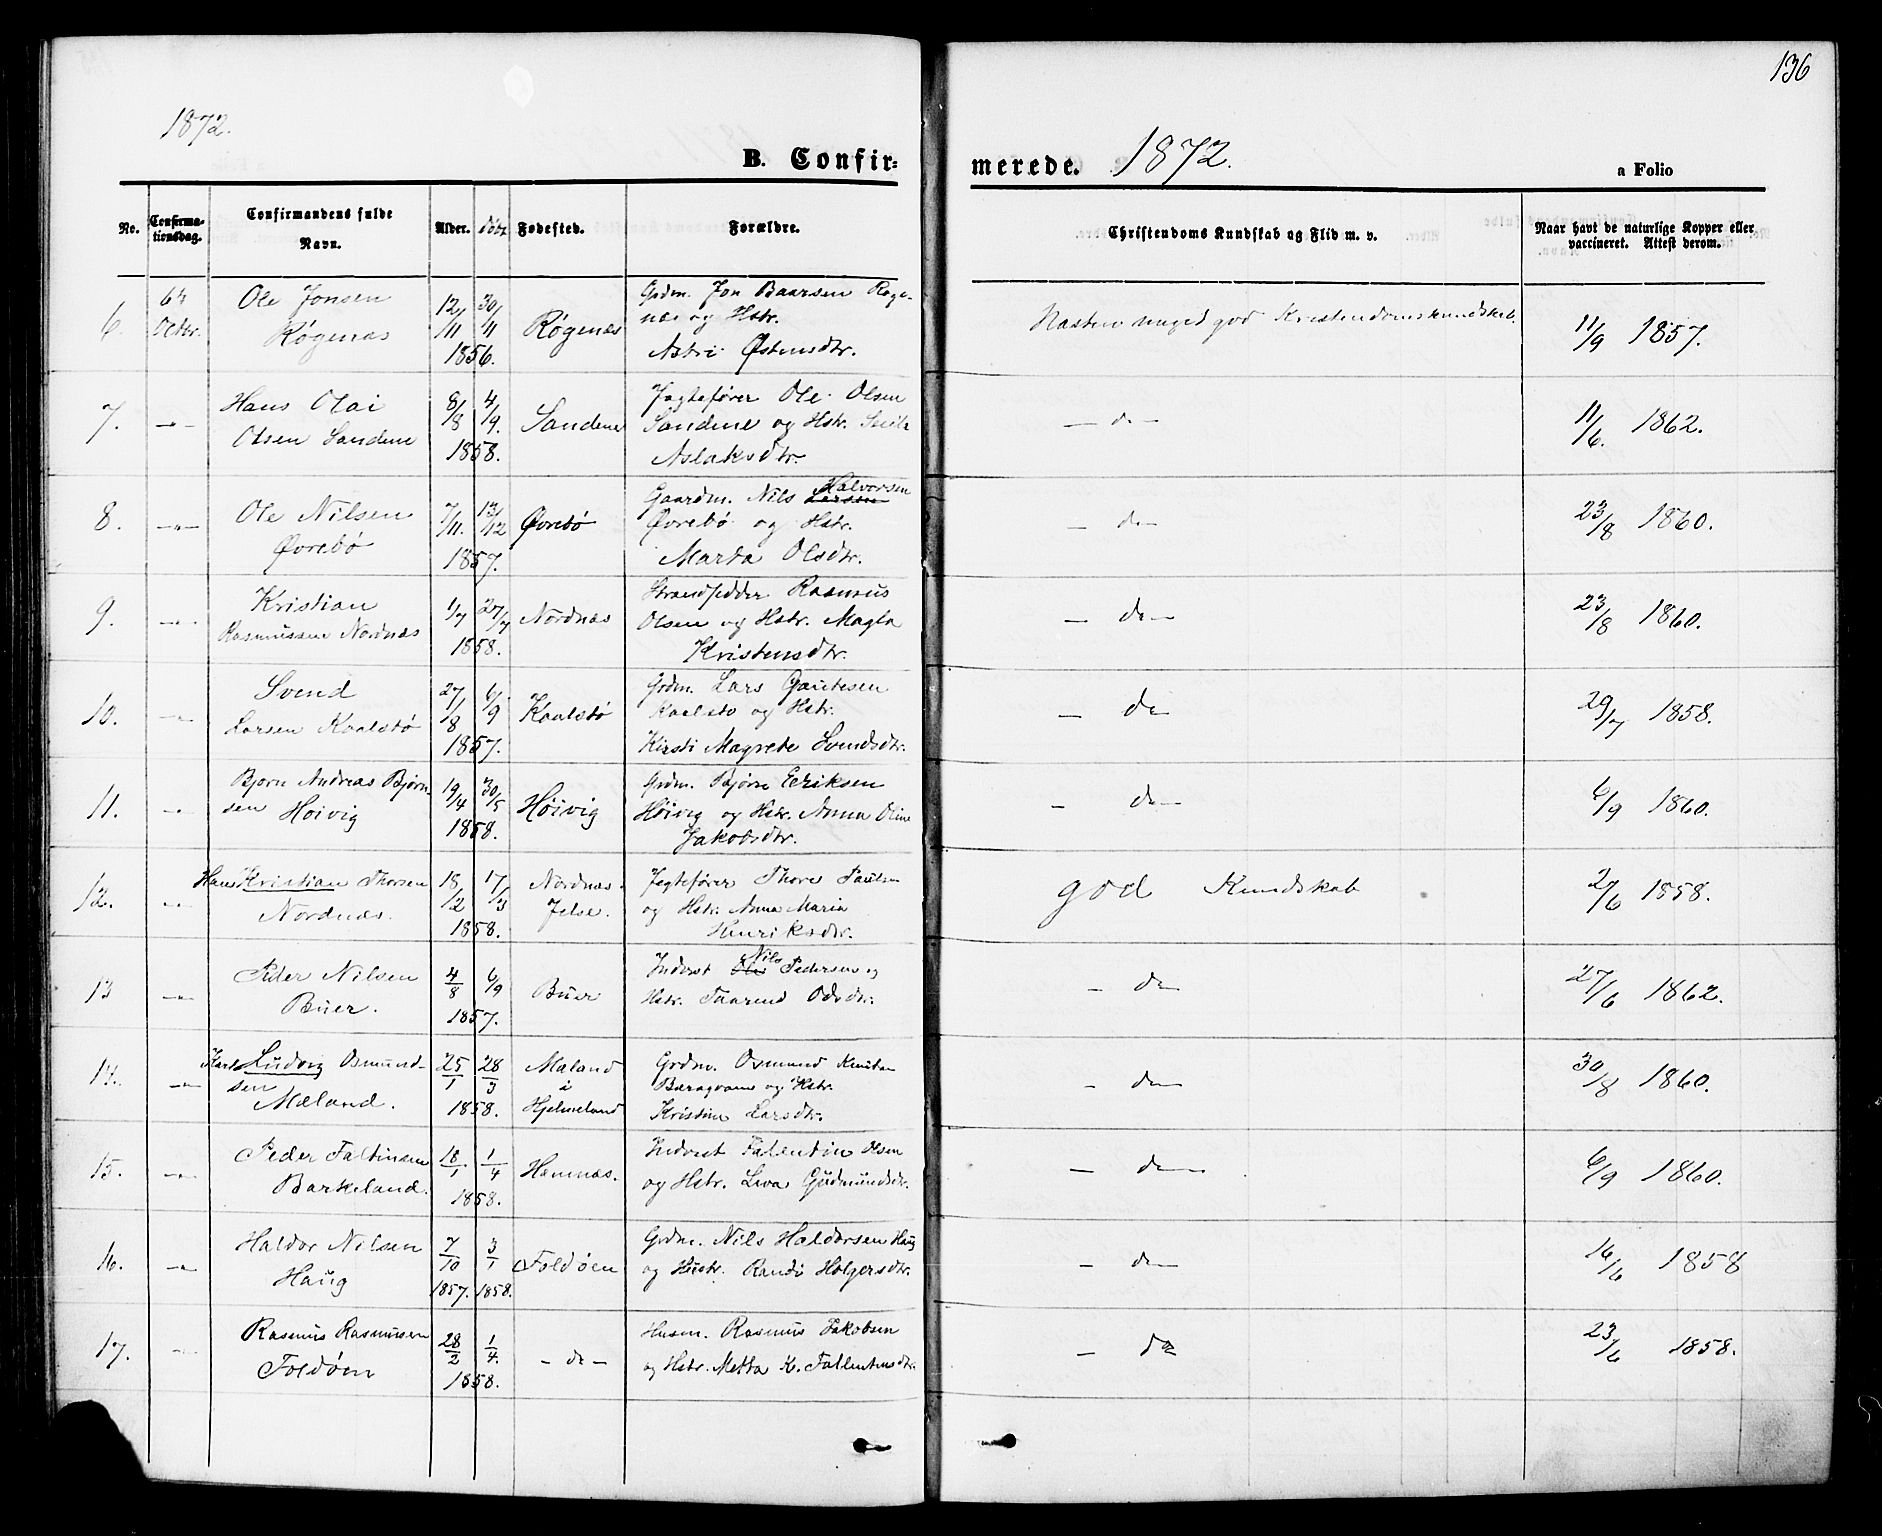 136
1872.
B. Confir-
merede. 1872.
a Folio
No.
Confirma-
tionsdag.
Confirmandens fulde
Navn.
Alder.
Døbt
Fødested.
Forældre.
Christendoms Kundskab og Flid m. v.
Naar havt de naturlige Kopper eller
vaccineret. Attest derom.
6. 6te Octbr. Ole Jonsen Røgenæs 12/11 30/11 1856. Røgenæs
Grdm. Jon Baarsen Røge-
næs og Hstr.
Astri Østensdtr.
Næsten meget god Kristendomskundskab. 11/9 1857.
7. -"- Hans Olai Olsen Sandene 8/8 4/9. 1858. Sandene
Jagtefører Ole Olsen
Sandene og Hstr.
Aslaksdtr.
- do - 11/6. 1862.
8. -"- Ole Nilsen Øvrebø 7/11. 13/12 1857. Øvrebø
Gaardm. Nils Larsen Halvorsen
Øvrebø og Hstr.
Marta Olsdtr.
- do - 23/8 1860.
9. -"- Kristian Rasmussen Nordnæs 1/7 27/7 1858. Nordnæs
Strandsidder Rasmus
Olsen og Hstr. Magla
Kristensdtr.
- do - 23/8 1860.
10. -"- Svend Larsen Kaalstø 27/8 6/9 1857. Kaalstø
Grdm. Lars Gautesen
Kaalstø og Hstr.
Kirsti Magrete Svendsdtr.
- do 29/7 1858.
11. -"- Bjørn Andreas Bjørn-
sen Høivig 19/4 30/5 1858. Høivig
Grdm. Bjørn Eeriksen
Høivig og Hstr. Anna Oline
Jakobsdtr.
- do - 6/9 1860.
12. -"- Hans Kristian Thorsen Nordnæs. 18/2 17/3 1858. Nordnæs. Jelse.
Jegtefører Thore Paulsen
og Hstr. Anna Maria
Henriksdtr.
god Kundskab 27/6 1858.
13 -"- Peder Nilsen Buer. 4/8 6/9 1857. Buer
Inderst Ole Nils Pedersen og
Hstr. Taarend Odsdtr.
- do - 27/6 1862.
14. -"- Karl Ludvig Osmund-
sen Mæland. 25/1 28/3 1858. Mæland i Hjelmeland
Grdm. Osmund Knutsen
og Hstr.
Kristine Larsdtr.
- do - 30/8 1860.
15. -"- Peder Faltinsen Barkeland. 18/1 1/4 1858. Hamnæs.
Inderst Falentin Olsen
og Hstr. Liva Gudmundsdtr.
- do - 6/9 1860.
16. -"- Haldor Nilsen Haug 7/10 1857. 3/1 1858. Foldøen
Grdm. Nils Haldorsen Haug
og Hustr. Randi Holgersdtr.
- do - 16/6 1858
17. -"- Rasmus Rasmussen Foldøen 28/2 1/4. 1858. - do -
Husm. Rasmus Jakobsen
og Hstr. Metta K. Fallentinsdtr.
- do 23/6 1858.